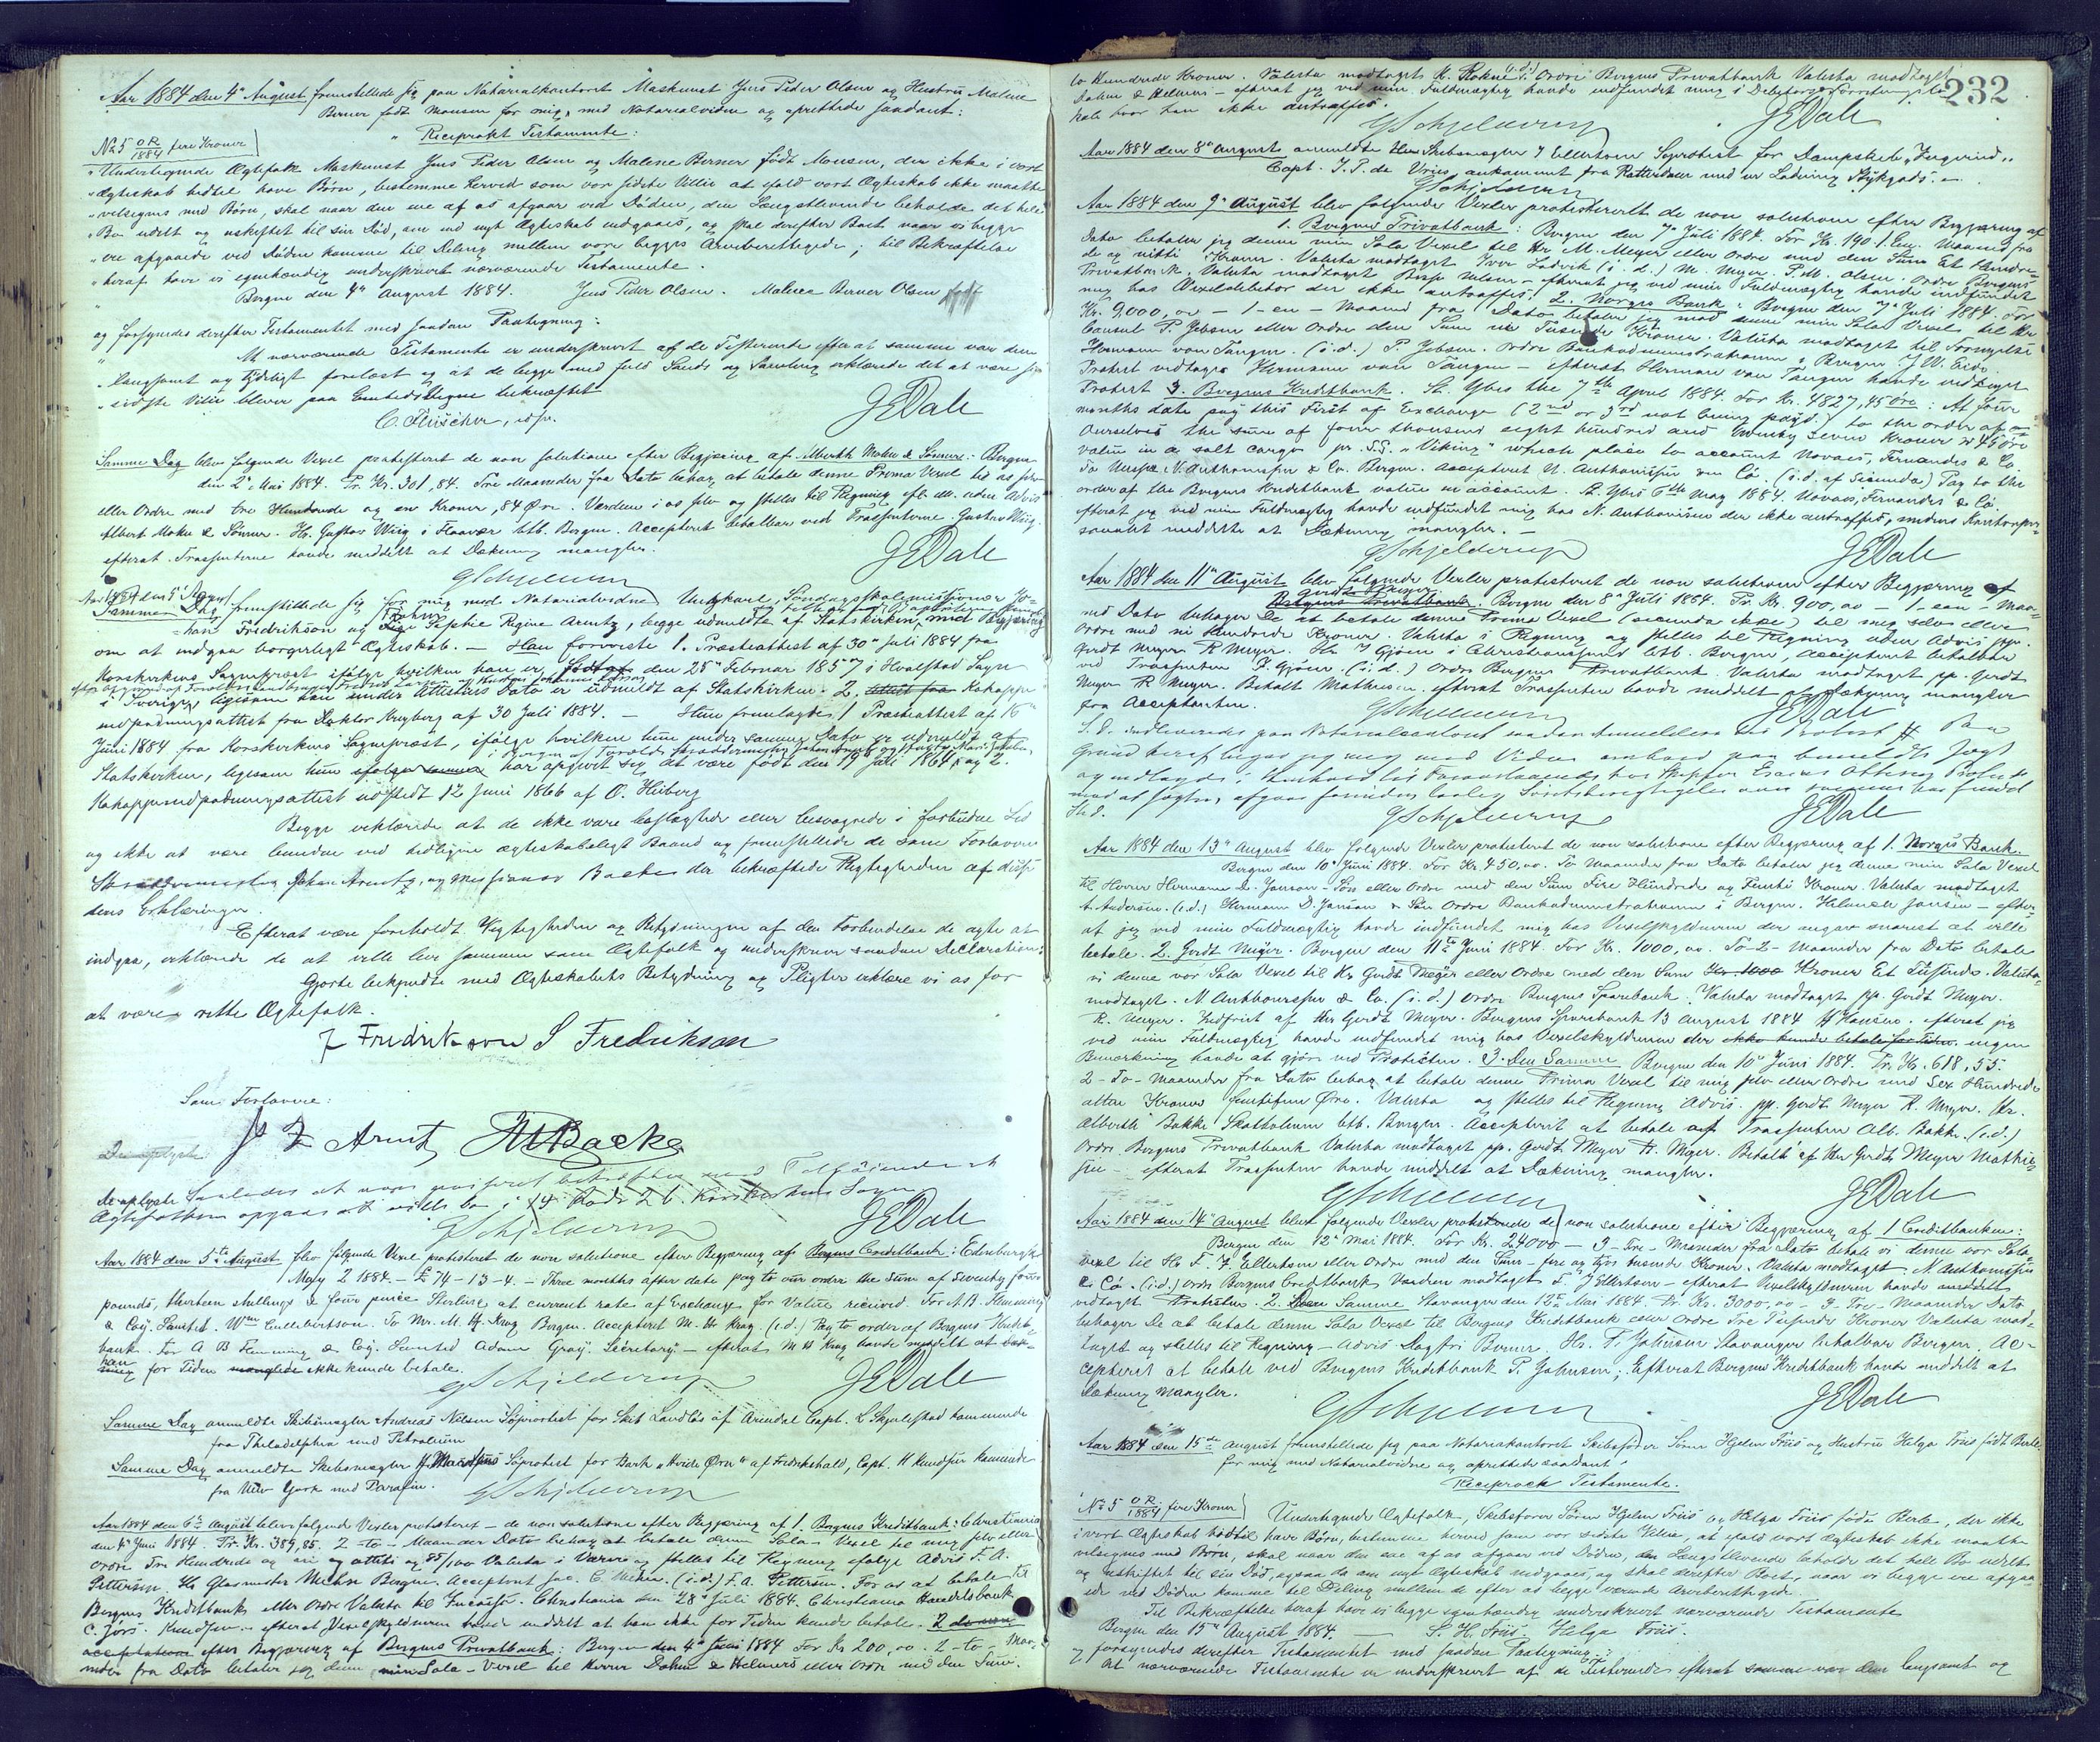 Aar 1884 den 4de August fremstillede sig paa Notarialkontoret Maskinist Jens Peder Olsen og Hustru Malene
Berner født Monsen for mig med Notarialvidne og oprettede saadant:
No 5 OR/1884 fire Kroner
"Reciprokt Testamente:
"Undertegnede Ægtefolk Maskinist Jens Peder Olsen og Malene Berner født Monsen, der ikke i vort
"Ægteskab hidtil have Børn, bestemme herved som vor sidste Villie at ifald vort Ægteskab ikke maatte
"velsignes med Børn, skal naar den ene af os afgaar ved Døden, den Længstlevende beholde det hele
"Bo udelt og uskiftet til sin Død, om nyt Ægteskab indgaaes, og skal derefter Boet naar vi begge
"ere afgaaede ved Døden komme til Deling mellem vore begges Arveberettigede; til Bekræftelse
"heraf have vi egenhændig underskrevet nærværende Testamente.
Bergen den 4de August 1884. Jens Peder Olsen. Malene Berner Olsen
og forsynedes derefter Testamentet med saadan Paategning:
At nærværende Testamente er underskrevet af de Testerende efterat samme var dem
"langsomt og tydeligt forelæst og at de begge med fuld Sands og Samling erklærede det at være sin
"sidste Villie bliver paa Embedsvegne bekræftet
JEDale
Samme Dag blev følgende Vexel protesteret de non solutione efter Begjæring af Albert Mohn & Sønner: Bergen
den 2 Mai 1884. Pr. Kr. 301,84. Tre Maaneder fra Dato behag at betale denne Prima Vexel til os selv
eller Ordre med tre Hundrede og en Kroner, 84 Øre. Værdien i os selv og stilles til Regning
Albert Mohn & Sønner. Hr. Gustav Wiig i Flaavær btb. Bergen. Accepteret betalbar ved Trassenterne. Gustav Wiig.
efterat Trassenterne havde meddelt at Dækning mangler.
GSchjelderup JEDale
Aar 1884 den 5 August
Samme Dag fremstillede sig for mig med Notarialvidne Ungkarl, Søndagsskolemissionær Jo-
han Fredrikson og Pige Sophie Regine Arentz, begge udmeldte af Statskirken, med Begjæring
om at indgaa borgerligt Ægteskab. - Han foreviste 1. Præsteattest af 30 Juli 1884 fra
Korskirkens Sognepræst ifølge hvilken han er født den 25 Februar 1857 i Hvalstad Sogn
i Sverige, ligesom han under Attestens Dato er udmeldt af Statskirken. 2. Kokoppe
indpodningsattest fra Doktor Nyberg af 30 Juli 1884. - Hun fremlagde 1 Præsteattest af 16
Juni 1884 fra Korskirkens Sognepræst, ifølge hvilken hun under samme Dato er udmeldt af
Statskirken, ligesom hun har opgivet sig at være født den 19 Juli 1864, og 2.
Kokoppeindpodningsattest udstedt 12 Juni 1866 af O. Heiberg
Begge erklærede at de ikke vare beslægtede eller besvogrede i forbudne Led
og ikke at være bundne ved tidligere ægteskabeligt Baand og fremstillede de som Forlovere
Skræddermester Johan Arentz, og Missionær Backe der bekræftede Rigtigheden af disse
deres Erklæringer.
Efterat være foreholdt Vigtigheden og Betydningen af den Forbindelse de agte at
indgaa, erklærede de at ville leve sammen som Ægtefolk og underskrev saadan Declaration:
Gjorte bekjendte med Ægteskabets Betydning og Pligter erklære vi os for
at være rette Ægtefolk.
J Fredrikson S Fredrikson
Som Forlovere:
J Z Arentz Backe
GSchjelderup JEDale
Aar 1884 den 5te August blev følgende Vexel protesteret de non solutione efter Begjæring af Bergens Creditbank: Edinburgh
May 2 1884. - £ 74-13-4. - Three months after date pay to our order the sum of Seventy four
pounds, thirteen shillings & four pence Sterling at current rate of Exchange for Value received. For A.B. Flemming
& Coy. Limited. Wm Cuthbertson. To Mr. M. H. Krag Bergen. Accepteret M. H Krag. (i.d.) Pay to order of Bergens Kredit-
bank. For A B Flemming & Coy. Limited Adam Gray. Secretary - efterat M H Krag havde meddelt at
han for Tiden ikke kunde betale.
GSchjelderup JEDale
Samme Dag anmeldte Skibsmægler Andreas Nilsen Søprotest for Skib Landlös af Arendal Capt. L Skjulestad kommende
fra Philadelphia med Petroleum
Samme Dag anmeldte Skibsmægler Søprotest for Bark "Hvide Ørn" af Fredrikshald, Capt. H Knudsen kommende
fra New York med Parafin.
GSchjelderup
Aar 1884 den 6te August bleve følgende Vexler protesteret - de non solutione efter Begjæring af 1. Bergens Kreditbank: Christiania
den 4 Juni 1884. Pr. Kr. 389,85. 2 - to - Maaneder Dato behag at betale denne Sola Vexel til mig selv eller
Ordre Tre Hundrede og ni og otteti og 85/100 Valuta i Varer og stilles til Regning ifølge Advis F. A.
Pettersen. Hr Glasmester Bergen. (i.d.) F. A. Pettersen. For os at betale til
Bergens Kreditbank eller Ordre Valuta til Incasso. Christiania den 28 Juli 1884. Christiania Handelsbank
efterat Vexelskyldneren havde meddelt at han ikke for Tiden kunde betale. 2
efter Begjæring af Bergens Privatbank: Bergen den 4de Juni 1884 For Kr 200,00. 2 - to - Maa-
neder fra Dato betaler jeg denne min Sola-Vexel til Herrer Dahm & Helmers eller Ordre med den Sum
232
to Hundrede Kroner. Valuta modtaget K. Rokne (i.d.) Ordre Bergens Privatbank Valuta modtaget
Dahm & Helmers - efterat jeg ved min Fuldmægtig havde indfundet mig i Debitors Forretningslo-
kale hvor han ikke antraffes.
GSchjelderup JEDale
Aar 1884 den 8de August anmeldte Herr Skibsmægler J Ellertsen Søprotest for Dampskib
Capt. J. P. de Vries ankommet fra Rotterdam med en Ladning Stykgods.
GSchjelderup
Aar 1884 den 9de August blev følgende Vexler protesteret de non solutione efter Begjæring af
1. Bergens Privatbank: Bergen den 7 Juli 1884. For Kr. 190. 1 En. Maaned fra
Dato betaler jeg denne min Sola Vexel til Hr M. Meyer eller Ordre med den Sum Et Hundre-
de og nitti Kroner. Valuta modtaget Iver Ladvik (i.d.) M. Meyer. P. M. Olsen Ordre Bergens
Privatbank, Valuta modtaget - efterat jeg ved min Fuldmægtig havde indfundet
mig hos Vexeldebitor der ikke antraffes. 2. Norges Bank: Bergen den 7 Juli 1884. For
Kr. 9,000,00 - 1 - en - Maaned fra Dato betaler jeg mod denne min Sola Vexel til Hr
Consul P. Jebsen eller Ordre den Sum ni Tusinde Kroner. Valuta modtaget til Fornyelse
Hermann von Tangen. (i.d.) P. Jebsen. Ordre Bankadministrationen i Bergen.
Protest vedtages Hermann von Tangen - efterat Herman von Tangen havde vedtaget
Protest 3. Bergens Kreditbank. St. Ybes the 7th April 1884. For Kr. 4827,45 Øre: At four
months date pay this First of Exchange (2nd or 3rd not being payd) to the order of
Ourselves the sum of four thousand eight hundred and twenty seven Kroner & 45 Øre
value in a salt cargo pr. S.S. "Viking" which place to account Novaes, Fernandes & Co.
To Messrs N. Anthonissen & Co. Bergen. Accepteret N. Anthonissen & Co. (i.d. af Secunda) Pay to the
order of the Bergens Kreditbank value in account. St. Ybes 6th May 1884. Novaes, Fernandes & Co.
efterat jeg ved min Fuldmægtig havde indfundet mig hos N. Anthonissen der ikke antraffes, medens Kontorper-
sonalet meddelte at Dækning mangler. -
GSchjelderup JEDale
Aar 1884 den 11te August blev følgende Vexler protesteret de non solutione efter Begjæring af
Gerdt Meyer: Bergen den 8 Juli 1884. Pr. Kr. 900,00 - 1 - een - Maa-
ned Dato behager De at betale denne Prima Vexel (secunda ikke) til mig selv eller
Ordre med ni Hundrede Kroner. Valuta i Regning og stilles til Regning uden Advis pp.
Gerdt Meyer R Meyer. Hr J Gjøen i Christianssund btb. Bergen, accepteret betalbar
ved Trassenten J. Gjøen. (i.d.) Ordre Bergens Privatbank. Valuta modtaget pp. Gerdt
Meyer R Meyer. Betalt Mathiesen. efterat Trassenten havde meddelt at Dækning mangler
fra Acceptanten.
GSchjelderup JEDale
S. D. indleveredes paa Notarialcontoret saadan Anmeldelse
Grund heraf begav jeg mig med Vidne ombord paa bemeldte Jagt
GSchjelderup JEDale
Aar 1884 den 13de August blev følgende Vexler protesteret de non solutione efter Begjæring af 1. Norges Bank.
Bergen den 10 Juni 1884. For Kr. 450,00. To Maaneder fra Dato betaler jeg denne min Sola Vexel
til Herrer Hermann D. Janson & Søn eller Ordre med den Sum Fire Hundrede og Femti Kroner. Valuta modtaget
A. Andersen. (i.d.) Hermann D. Janson & Søn Ordre Bankadministrationen i Bergen. - efter-
at jeg ved min Fuldmægtig havde indfundet mig hos Vexelskyldneren der angav snarest at ville
betale. 2. Gerdt Meyer. Bergen den 11te Juni 1884. For Kr. 1000,00. To - 2 - Maaneder fra Dato betale
vi denne vor Sola Vexel til Hr Gerdt Meyer eller Ordre med den Sum Kroner Et Tusinde. Valuta
modtaget. N Anthonissen & Co. (i.d.) Ordre Bergens Sparebank. Valuta modtaget pp. Gerdt Meyer.
R. Meyer. Indfriet af Hr Gerdt Meyer. Bergens Sparebank 13 August 1884 H Hansen. efterat jeg
ved min Fuldmægtig havde indfundet mig hos Vexelskyldneren der ikke kunde betale for Tiden. ingen
Bemærkning havde at gjøre ved Protesten. 3. Den Samme Bergen den 10 Juni 1884. Pr. Kr. 618,55.
2 - To - Maaneder fra Dato behag at betale denne Prima Vexel til mig selv eller Ordre med Sex Hundrede
atten Kroner femtifem Øre. Valuta og stilles til Regning Advis. pp. Gerdt Meyer R. Meyer. Hr.
Alberth Bakke Skatholmen btb. Bergen. Accepteret at betale af Trassenten Alb. Bakke. (i.d.)
Ordre Bergens Privatbank Valuta modtaget pp. Gerdt Meyer R. Meyer. Betalt af Hr Gerdt Meyer Mathie-
sen - efterat Trassenten havde meddelt at Dækning mangler.
GSchjelderup JEDale
Aar 1884 den 14de August blev følgende Vexler protesterede de non solutione efter Begjæring af 1 Creditbanken:
Bergen den 12te Mai 1884. For Kr. 24000 - 3 - Tre - Maaneder fra Dato betale vi denne vor Sola
Vexel til Hr F. J. Ellertsen eller Ordre med den Sum - fire og tyve tusinde Kroner. Valuta modtaget N. Anthonissen
& Co. - (i.d.) Ordre Bergens Creditbank Værdien modtaget F. J Ellertsen - efterat Vexelskyldneren havde
vedtaget Protesten. 2. Den Samme Stavanger den 12te Mai 1884. Pr. Kr. 3000,00 - 3 - Tre - Maaneder Dato
behager De at betale denne Sola Vexel til Bergens Kreditbank eller Ordre Tre Tusinde Kroner Valuta mod-
taget og stilles til Regning - Advis. Hr. P Johnsen Stavanger betalbar Bergen. Ac-
cepteret at betale ved Bergens Kreditbank P. Johnsen; Efterat Bergens Kreditbank havde meddelt at
Dækning mangler.
GSchjelderup JEDale
Aar 1884 den 15de August fremstillede sig paa Notarialkontoret Skibsfører Søren Hjelm Friis og Hustru Helga Friis født Berle
for mig med Notarialvidne og oprettede saadant:
Reciprock Testamente.
No 5 OR/1884 fire Kroner
Undertegnede Ægtefolk, Skibsfører Søren Hjelm Friis og Helga Friis født Berle, der ikke
i vort Ægteskab hidtil have Børn, bestemme herved som vor sidste Villie, at ifald vort Ægteskab ikke maatte
velsignes med Børn, skal naar den ene af os afgaar ved Døden, den Længstlevende beholde det hele Bo udelt
og uskiftet til sin Død, ogsaa da om nyt Ægteskab indgaaes, og skal derefter Boet, naar vi begge ere afgaa-
ede ved Døden komme til Deling mellem de efter os begge værende Arveberettigede.
Til Bekræftelse heraf have vi begge egenhændig underskrevet nærværende Testamente
Bergen den 15de August 1884. - S. H. Friis. Helga Friis.
og forsynedes derefter Testamentet med saadan Paategning:
At nærværende Testamente er underskrevet af de Testerende efterat samme var dem langsomt og